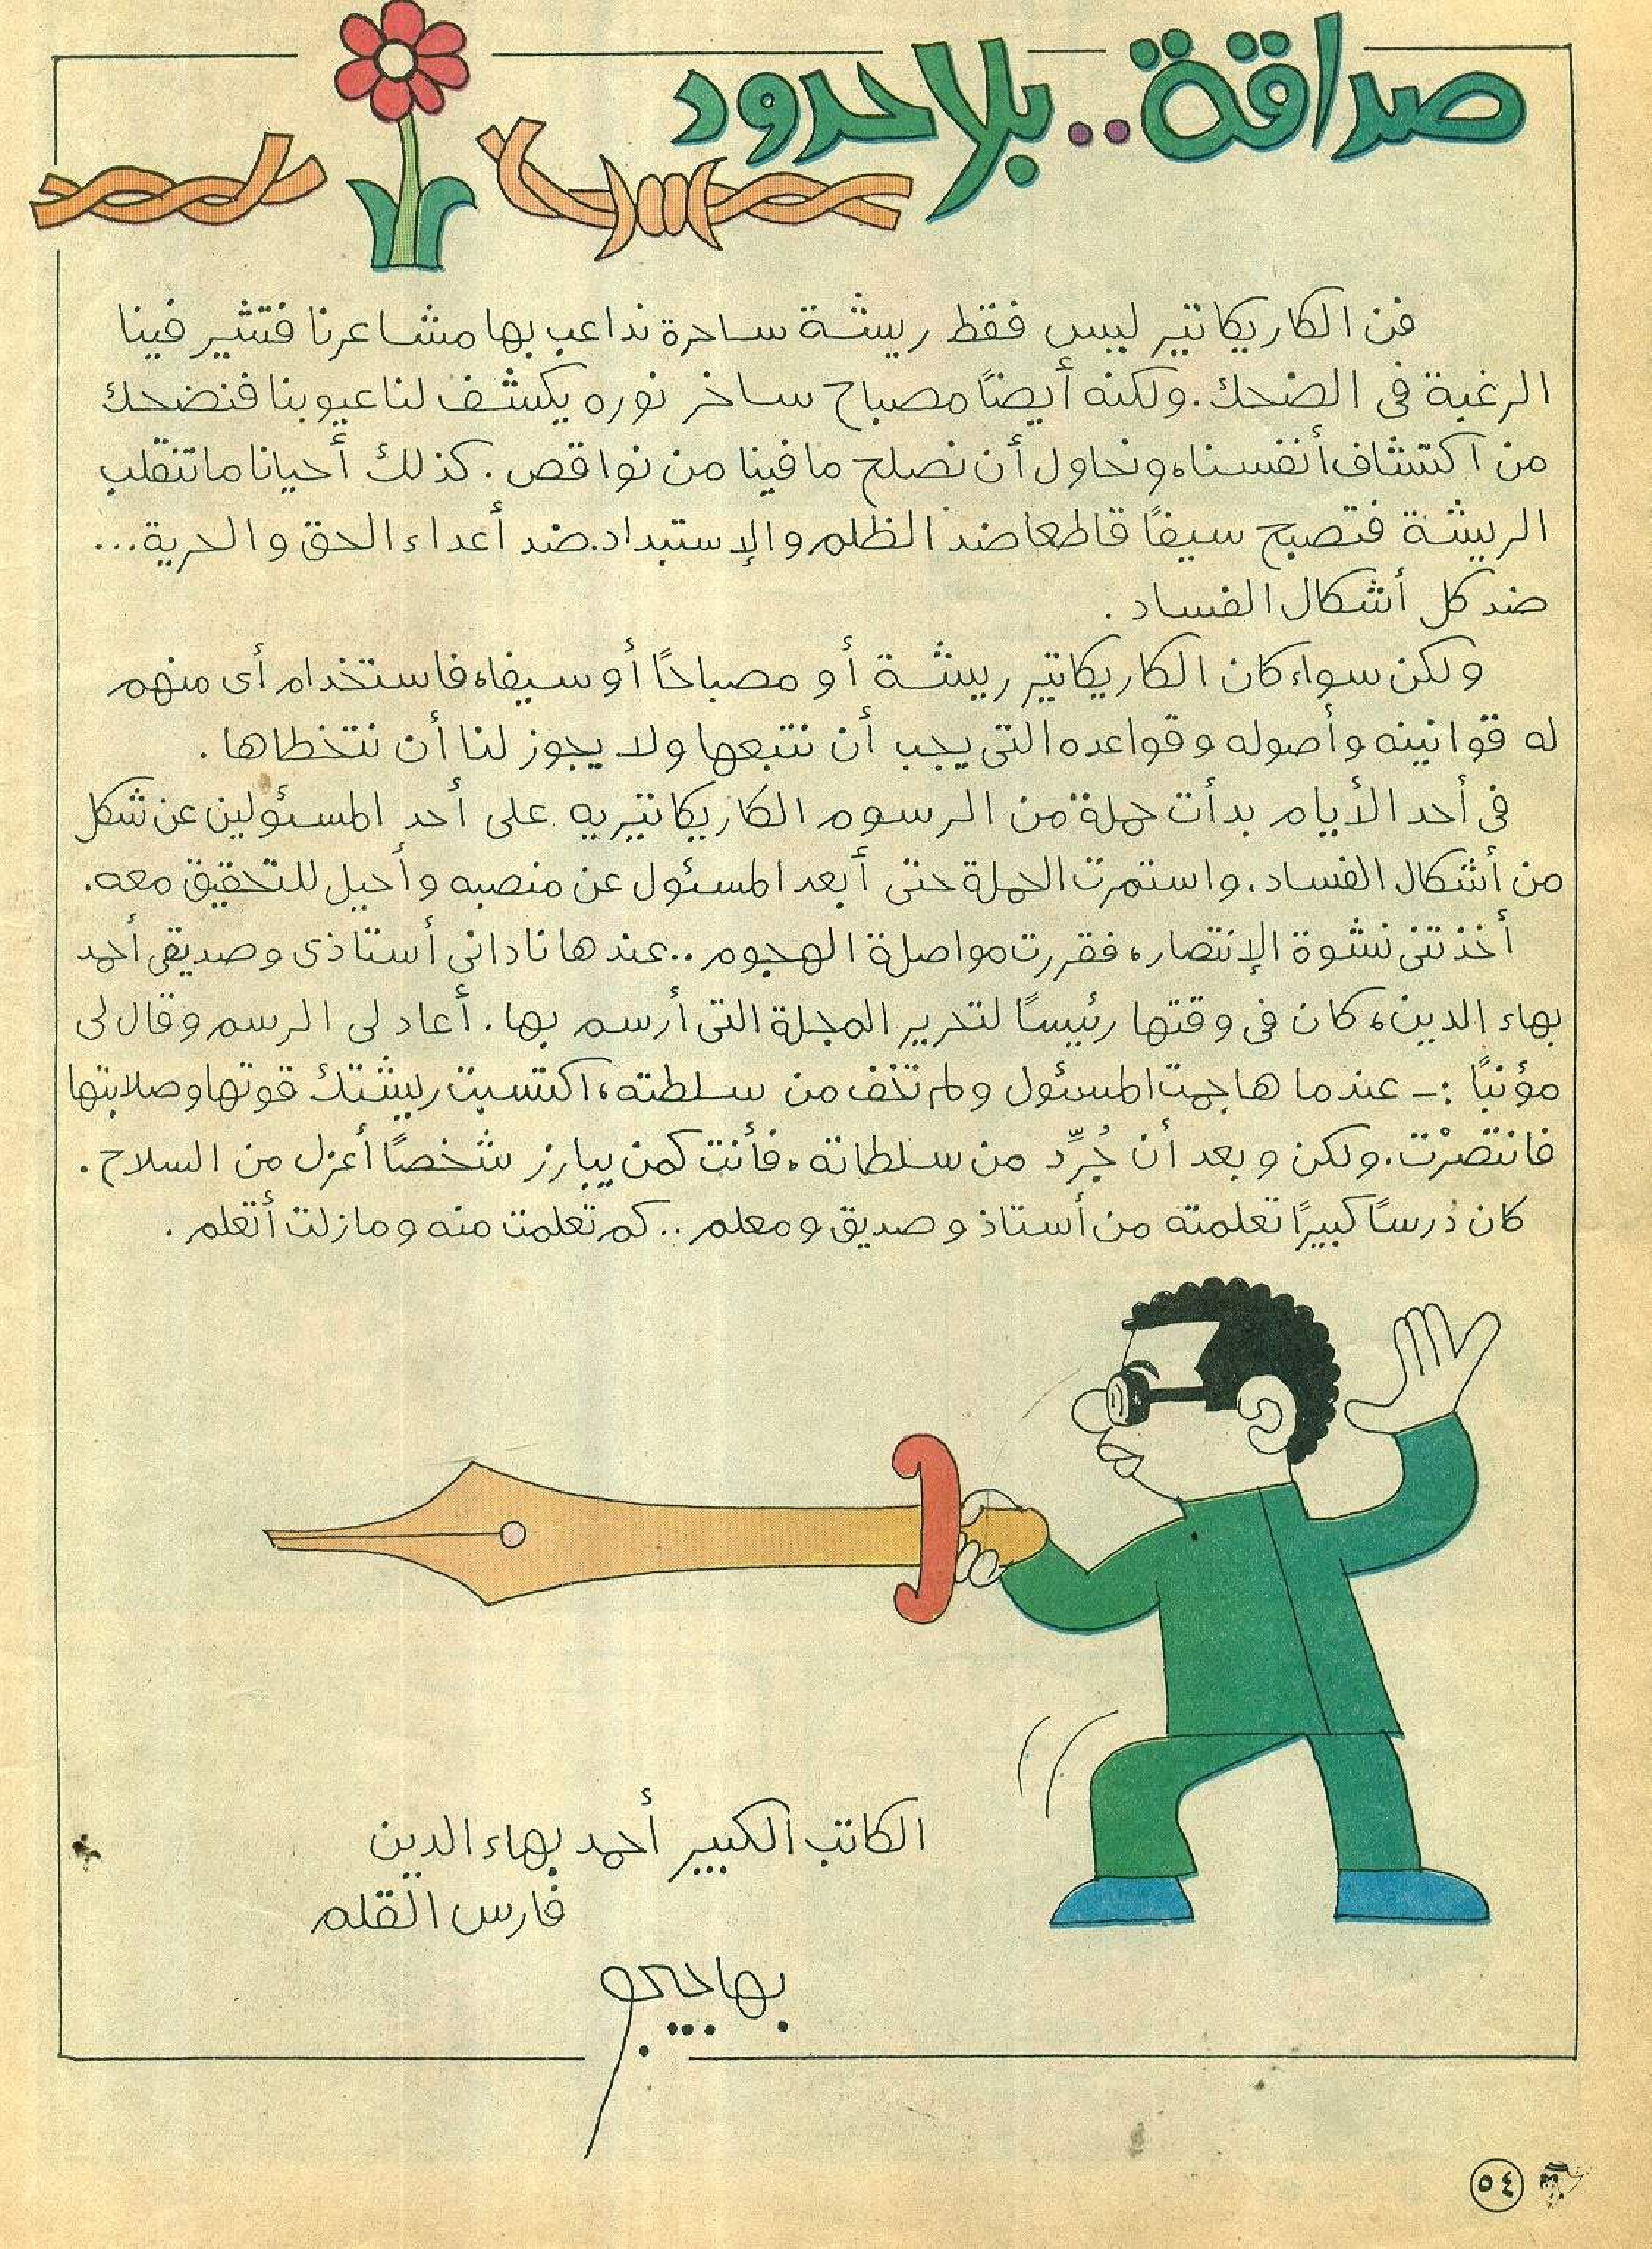 صداقة.. بلا حدود
فن الكاريكاتير ليس فقط ريشة ساحرة نداعب بها مشاعرنا فتثير فينا
الرغبة فى الضحك. ولكنه أيضاً مصباح ساخر نوره يكشف لنا عيوبنا فنضحك
من اكتشاف أنفسنا، ونحاول أن نصلح ما فينا من نواقص. كذلك أحيانا ما تنقلب
الريشة فتصبح سيفاً قاطعا ضد الظلم والإستبداد. ضد أعداء الحق والحرية...
ضد كل أشكال الفساد.
ولكن سواء كان الكاريكاتير ريشة أو مصباحاً أو سيفا، فاستخدام أى منهم
له قوانينه وأصوله وقواعده التى يجب أن نتبعها ولا يجوز لنا أن نتخطاها.
فى أحد الأيام بدأت حملة من الرسوم الكاريكاتيريه على أحد المسئولين عن شكل
من أشكال الفساد. واستمرت الحملة حتى أبعد المسئول عن منصبه وأحيل للتحقيق معه.
أخذتنى نشوة الإنتصار، فقررت مواصلة الهجوم.. عندها نادانى أستاذى وصديقى أحمد
بهاء الدين، كان فى وقتها رئيساً لتحرير المجلة التى أرسم بها. أعاد لى الرسم وقال لى
مؤنباً :- عندما هاجمت المسئول ولم تخف من سلطته، اكتسبت ريشتك قوتها وصلابتها
فانتصرْت. ولكن وبعد أن جُرِّد من سلطاته، فأنت كمن يبارز شخصاً أعزل من السلاح.
كان درساً كبيراً تعلمته من أستاذ وصديق ومعلم.. كم تعلمت منه ومازلت أتعلم.
الكاتب الكبير أحمد بهاء الدين
فارس القلم
بهاجيجو
٥٤